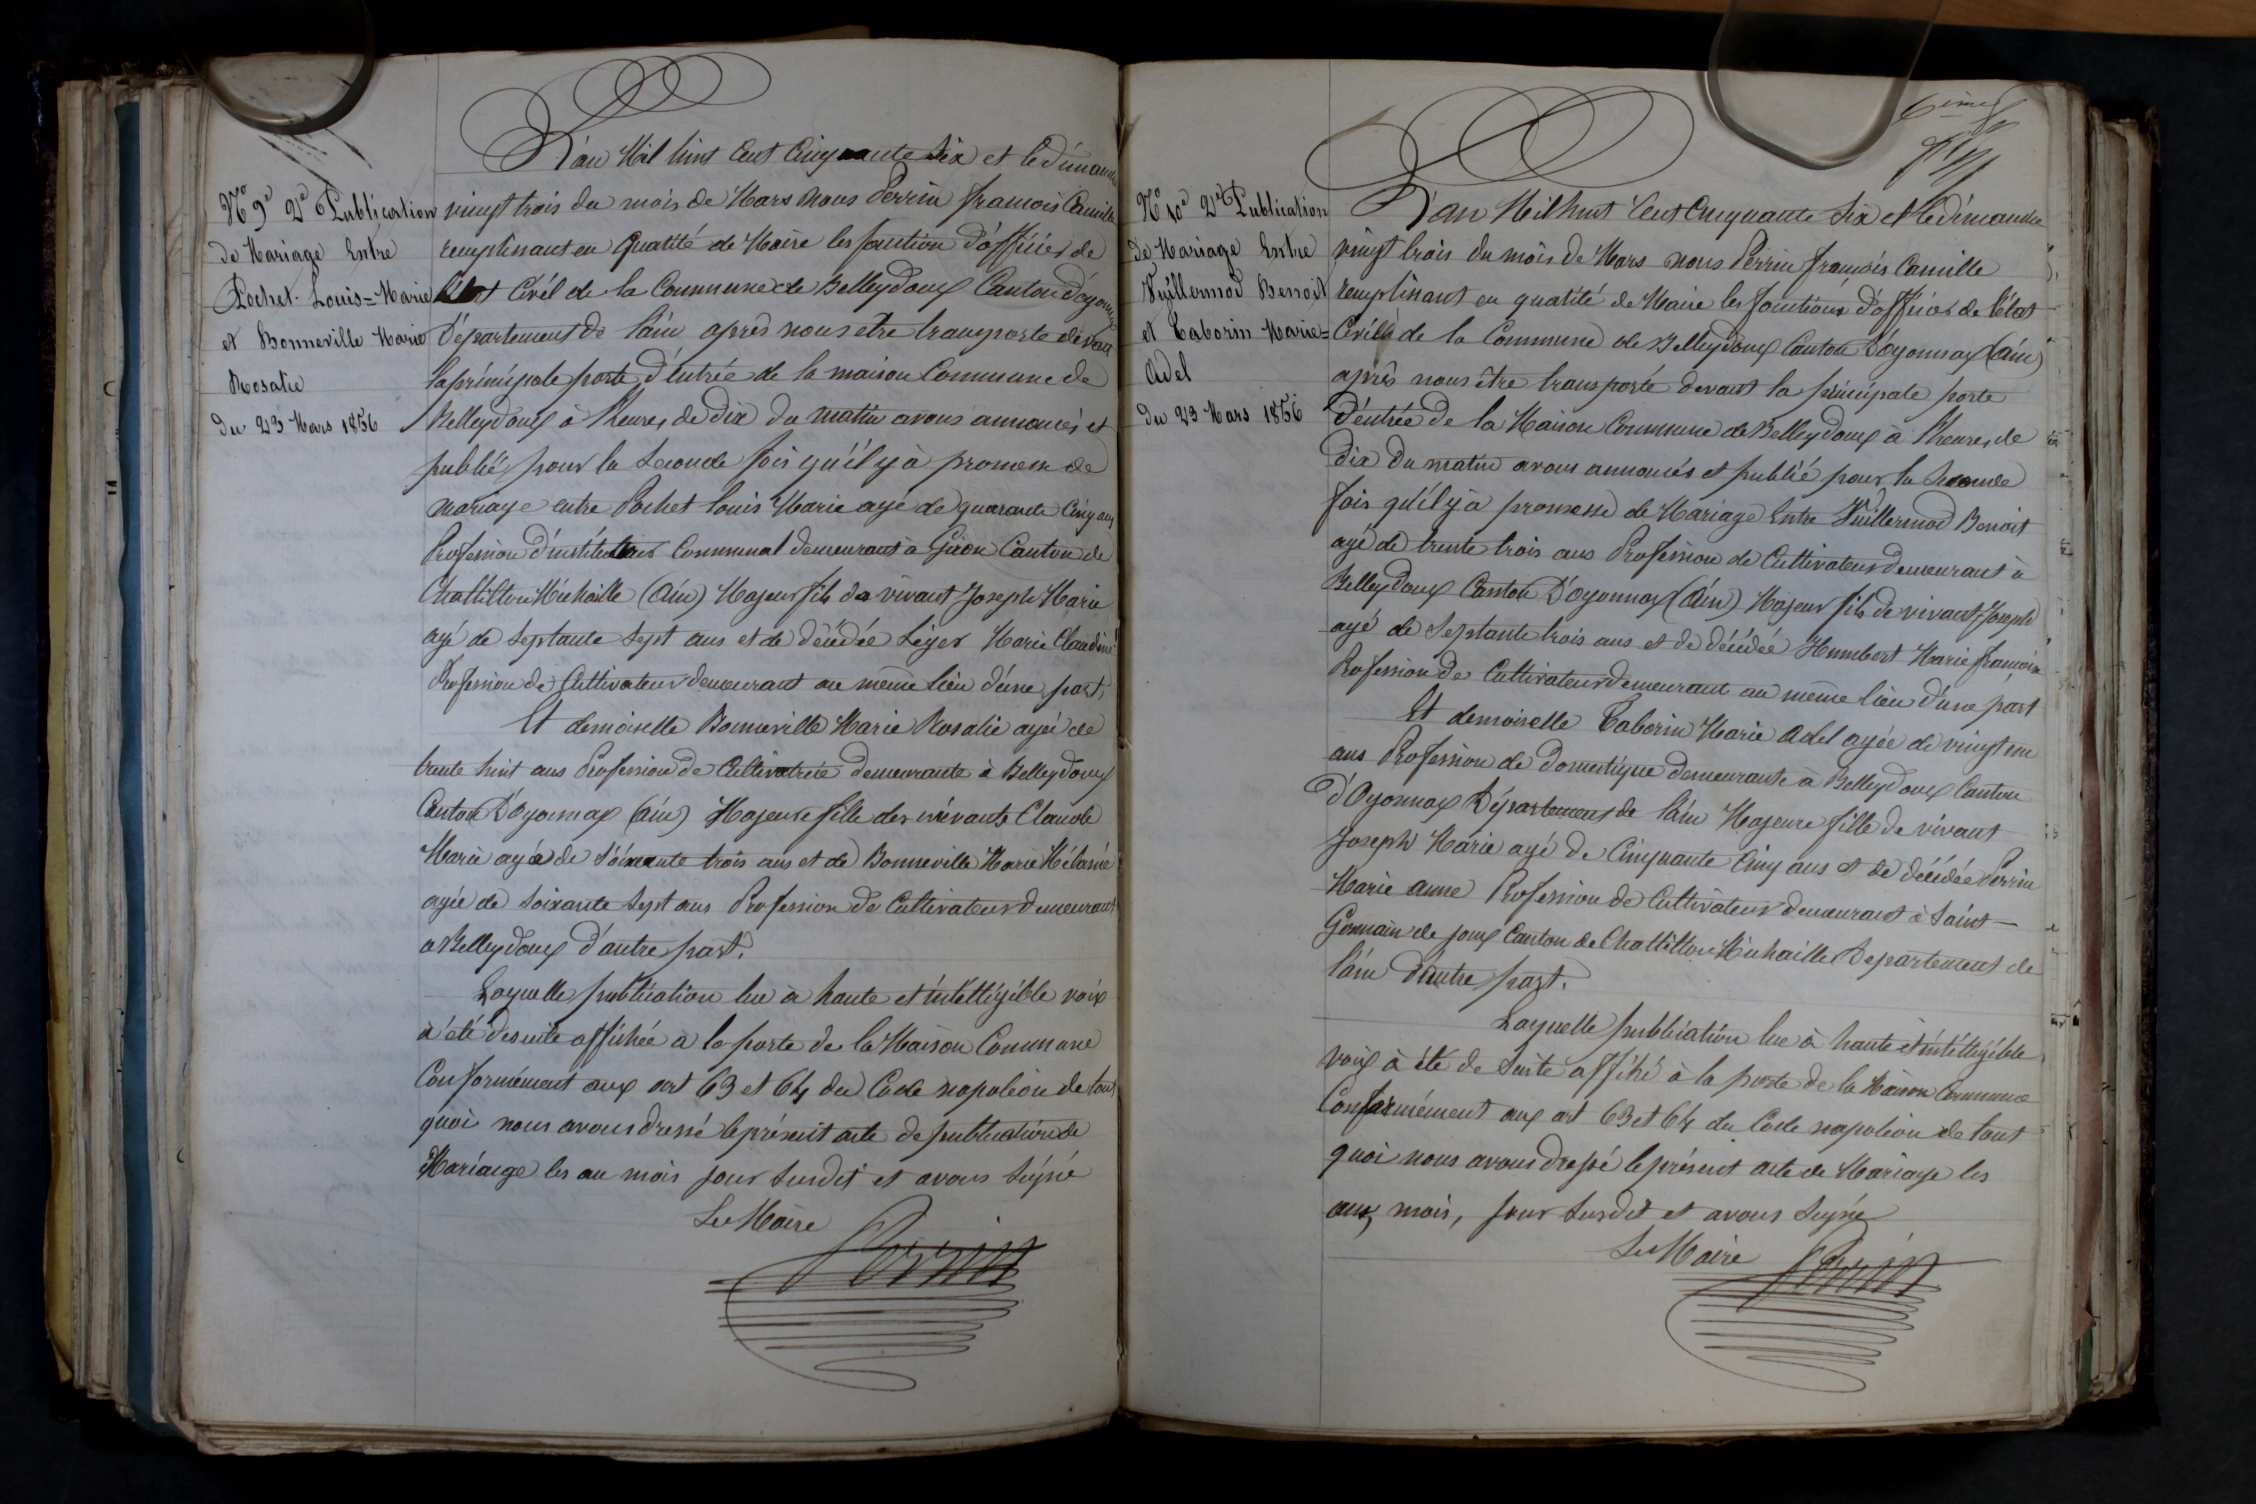 N° 9e 2e Publication
de Mariage Entre
Pochet Louis=Marie
et Bonneville Marie
Rosalie
du 23 Mars 1856
L'an Mil huit Cent Cinquante Six et le dimanche
vingt trois du mois de Mars Nous Perrin françois Camille
remplissant en Qualité de Maire les fonction d'officier de
l'Etat Civil de la Commune de Belleydoux Canton d'oyonnax
Département de l'ain après nous etre transporte devant
la principale porte d'entrée de la maison Commune de
Belleydoux à l'heure, de dix du matin avons annoncés et
publié pour la Seconde fois qu'il y à promesse de
mariage entre Pochet louis Marie agé de quarante Cinq ans
Profession d'instituteur Communal demeurant à Giron Canton de
Chattillon Michaille (Ain) Majeur fils de vivant Joseph Marie
agé de Septante Sept ans et de décédée Léger Marie Claudine
Profession de Cultivateur demeurant au même lieu d'une part,
Et demoiselle Bonneville Marie Rosalie agée de
trente huit ans Profession de Cultivatrice demeurante à Belleydoux
Canton D'Oyonnax (Ain) Majeure fille des vivants Claude
Marie agée de Soixante trois ans et de Bonneville Marie Mélanie
agée de Soixante Sept ans Profession de Cultivateur demeurant
a Belleydoux d'autre part.
Laquelle publication lue à haute et intélligible voix
à été desuite affichée à la porte de la Maison Commune
Conformément aux art 63 et 64 du Code napoléon de tout
quoi nous avons dressé le présent acte de publication de
Mariage les an mois jour Susdit et avons Signé
Le Maire
Perrin
6ème
N° 10e 2e Publication
de Mariage Entre
Vuillermod Benoit
et Taborin Marie=
Adel
du 23 Mars 1856
L'an Mil huit Cent Cinquante Six et le dimanche
vingt trois du mois de Mars nous Perrin françois Camille
remplissant en qualité de Maire les fonctions d'officier de l'état
Civil de la Commune de Belleydoux Canton d'Oyonnax (Ain)
après nous être transporté devant la principale porte
d'entrée de la Maison Commune de Belleydoux à l'heure, de
dix du matin avons annoncés et publié pour la Seconde
fois qu'il y à promesse de Mariage Entre Vuillermod Benoit
agé de trente trois ans Profession de Cultivateur demeurant à
Belleydoux Canton D'Oyonnax (Ain) Majeur fils de vivant Joseph
agé de Septante trois ans et de décédée Humbert Marie françoise
Profession de Cultivateur demeurant au même lieu d'une part
Et demoiselle Taborin Marie Adel agée de vingt un
ans Profession de domestique demeurante à Belleydoux Canton
d'Oyonnax Département de l'ain Majeure fille de vivant
Joseph Marie agé de Cinquante Cinq ans et de décédée Perrin
Marie anne Profession de Cultivateur demeurant à Saint-
Germain de joux Canton de Chattillon Michaille Departement de
l'ain d'autre part.
Laquelle publication lue à haute et intélligible
voix à été de Suite affiché à la porte de la Maison Commune
Conformément aux art 63 et 64 du Code napoléon de tout
quoi nous avons dressé le présent acte de Mariage les
an, mois, jour Susdit et avons Signé
Le Maire
Perrin